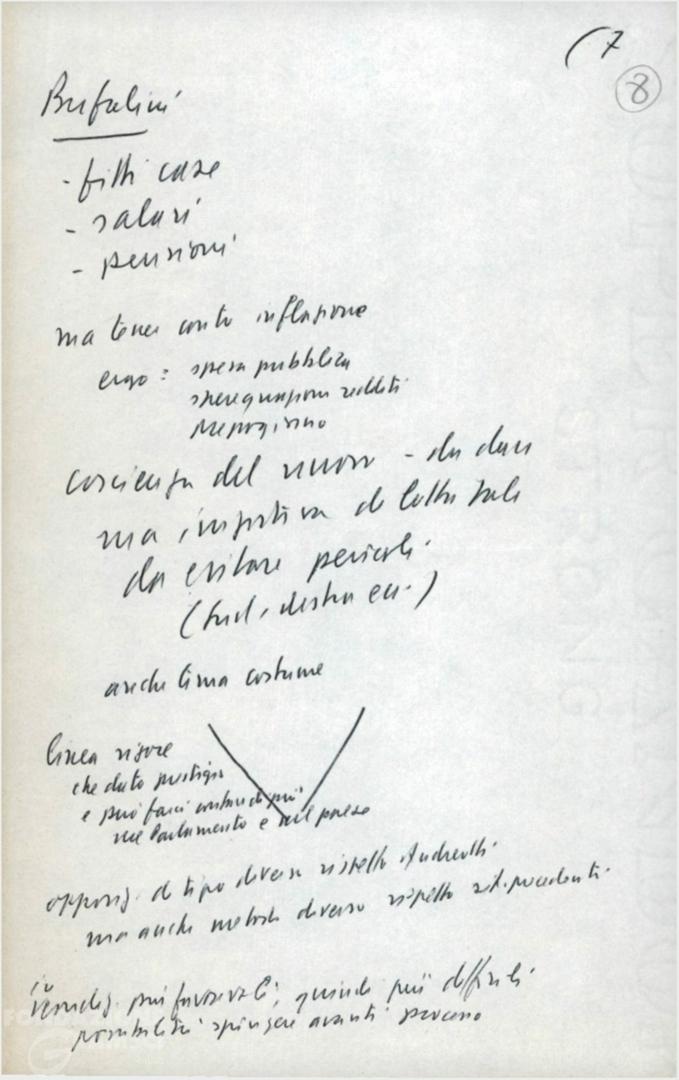 (7
8
Bufalini
- fitti case
- salari
- pensioni
ma tener conto inflazione
ergo: spesa pubblica
sperequazioni redditi
coscienza del nuovo - da dare
ma impostiva di lotta tale
da evitare pericoli
(Sud, destra ecc.)
anche tema costume
linea rigore
che dato prestigio
e può farci contare di più
nel Parlamento e nel paese
opposiz. di tipo diverso rispetto Andreotti
ma anche metodi diversi rispetto precedenti
più favorevoli, quindi più difficili
possibilità spingere avanti processo